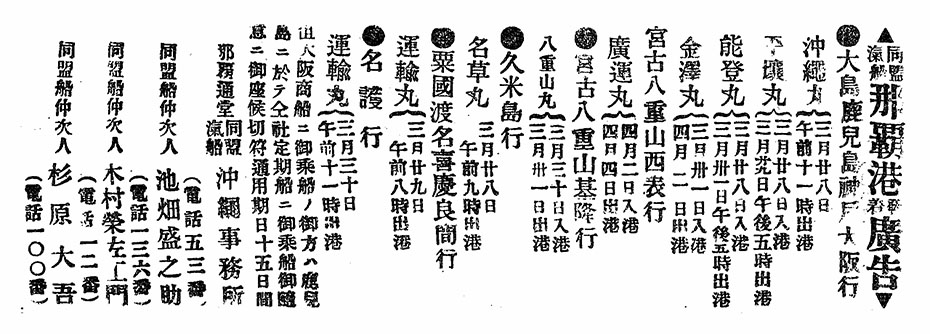 ▲同盟汽船那覇港發着廣告▼
●大島鹿兒島神戸大阪行
沖繩丸 三月廿八日午前十一時出港
平壤丸 三月廿八日入港 三月廿九日午後五時出港
能登丸 三月廿八日入港 三月卅一日午後五時出港
金澤丸 三月卅一日入港 四月一日出港
宮古八重山西表行
廣運丸 四月二日入港 四月四日出港
●宮古八重山基隆行
八重山丸 三月三十日入港 三月卅一日出港
●久米島行
名草丸 三月廿八日午前九時出港
●粟國渡名喜慶良間行
運輸丸 三月廿九日午前八時出港
●名護行
運輸丸 三月三十日午前十一時出港
但大阪商船ニ御乘船ノ御方ハ鹿兒
島ニ於テ仝社定期船ニ御乘船御隨
意ニ御座候切符通用期日十五日間
那覇通堂 同盟汽船 沖繩事務所
(電話五三番)
同盟船仲次人 池畑盛之助
(電話一三六番)
同盟船仲次人 木村榮左工門
(電話一二番)
同盟船仲次人 杉原大吾
(電話一〇〇番)